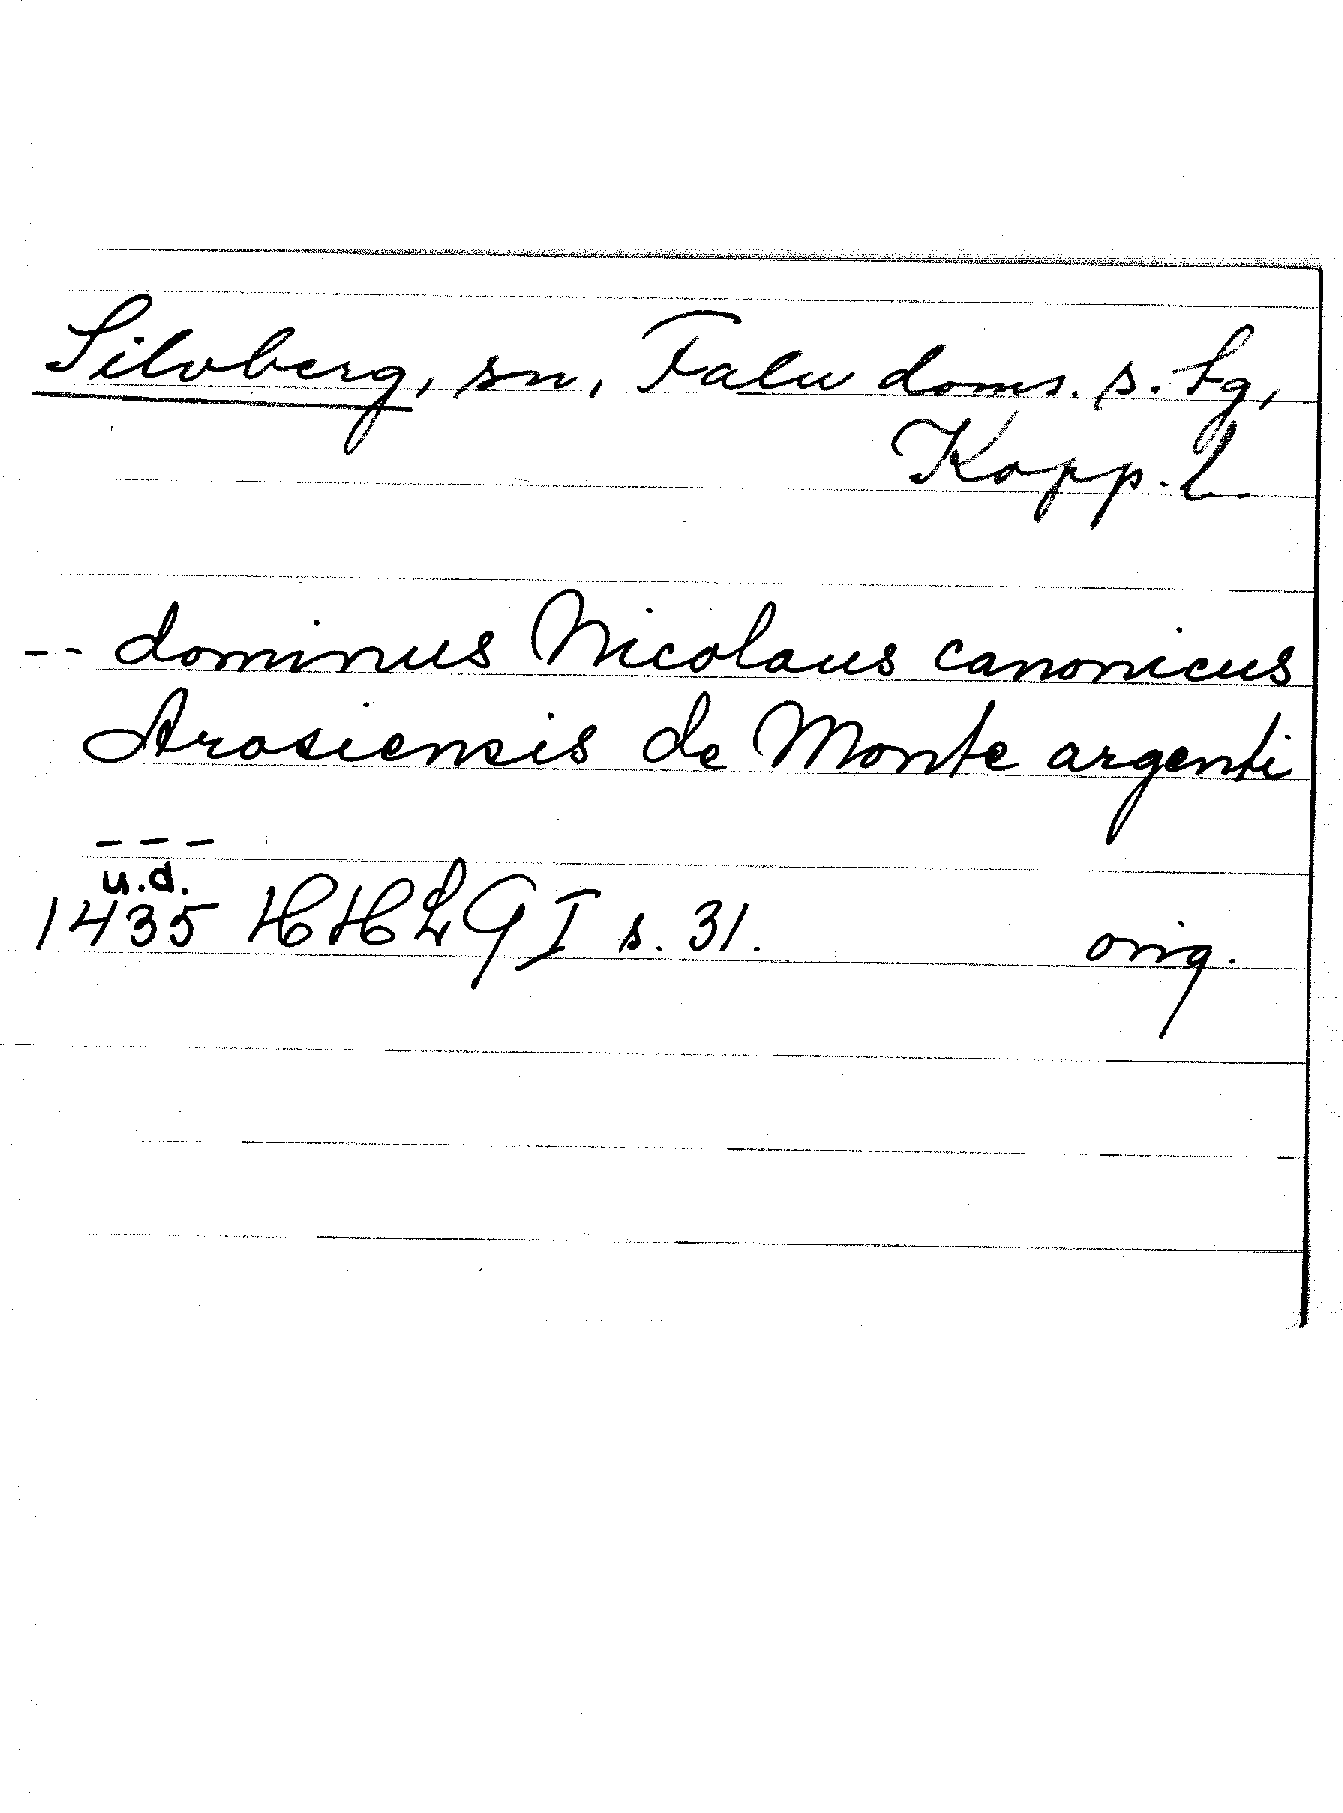 Silvberg, sn, Falu doms. s. tg,
Kopp. l.
-- dominus Nicolaus canonicus
Arosiensis de Monte argenti
---
u.d.
1435 HHLG I s. 31. orig.